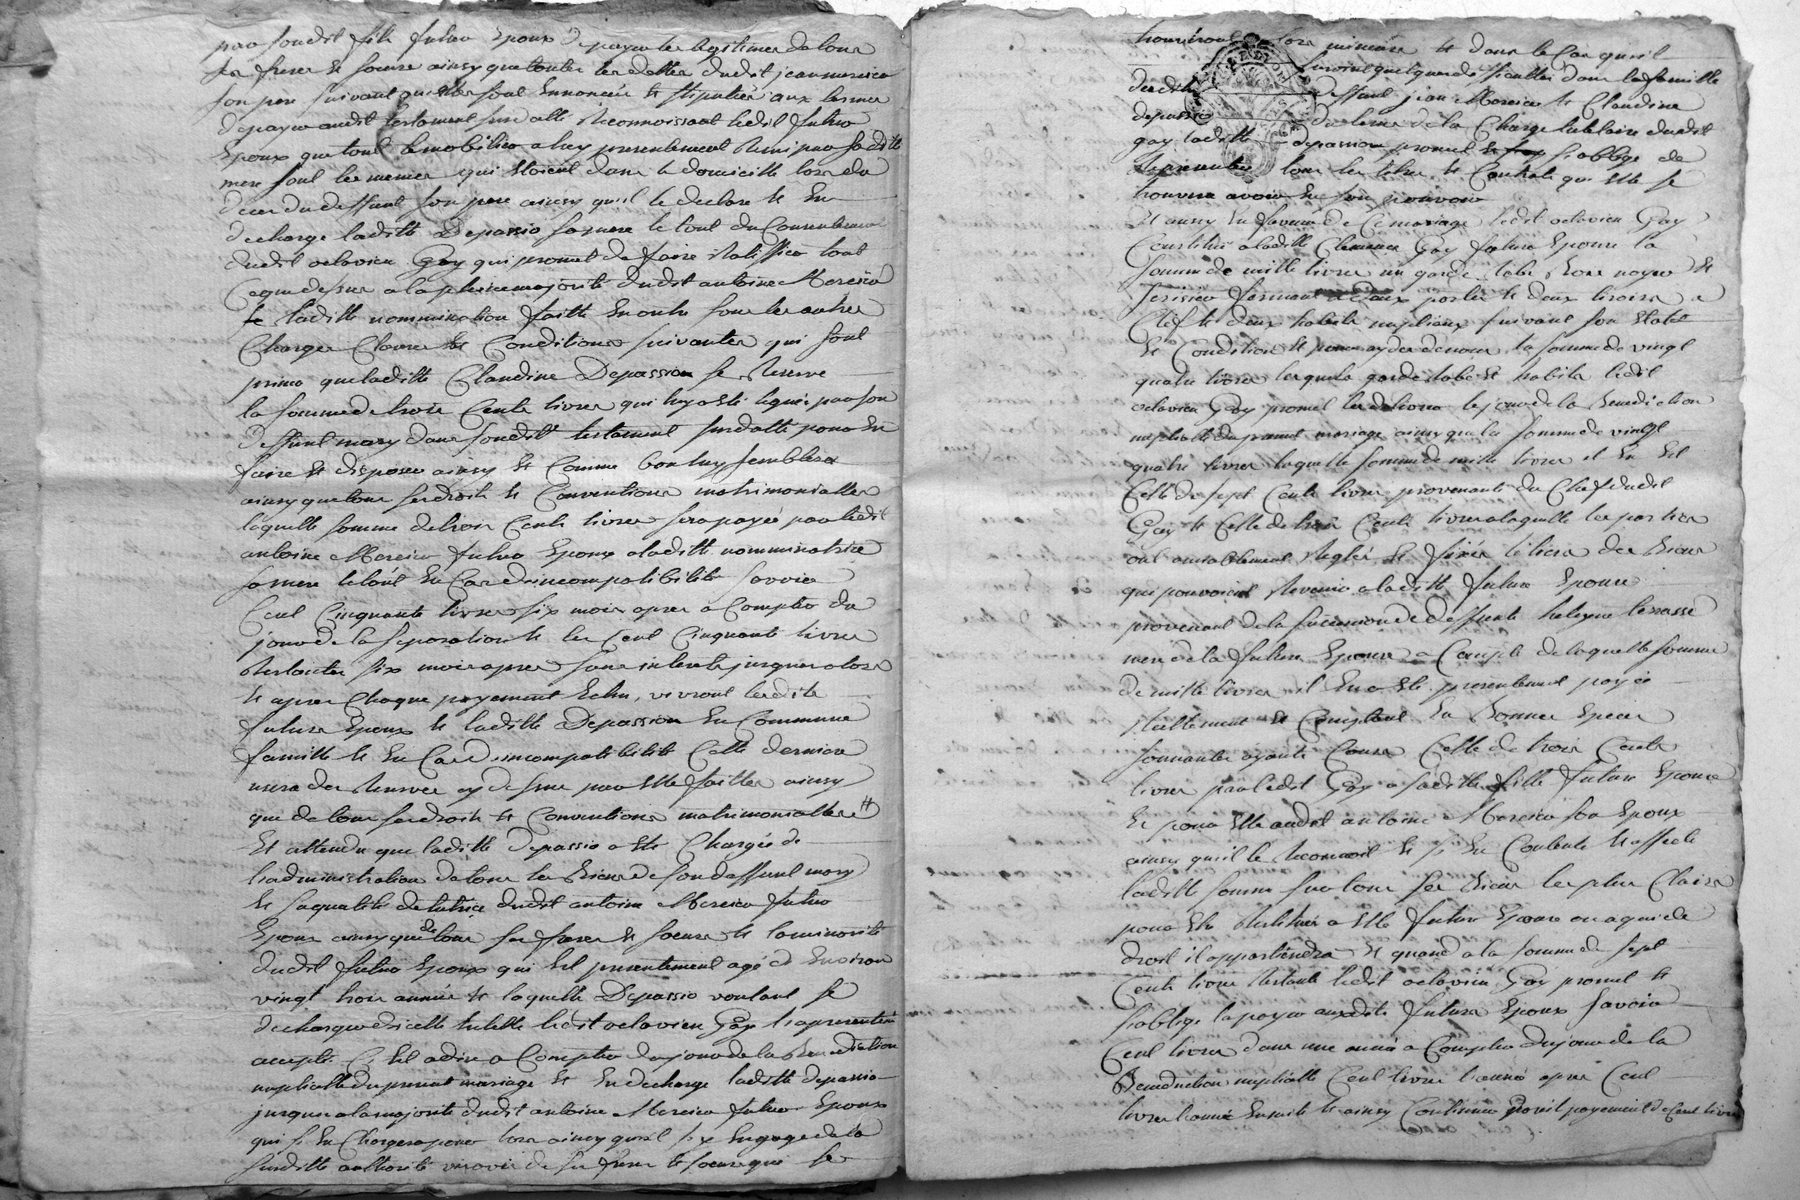 par sondit fils futur Epoux de payer les legitimes de tous
ses freres et soeurs ainsy que toutes les dettes dudit jean mercier
son pere suivant quelles sont Ennoncées et stipulées aux termes
dudit testament sus datté Reconnoissant ledit futur
Epoux que tout le mobilier a luy presentement Remis par sa ditte
mere sont les memes qui Etoient dans le domicille lors du
deces du deffunt son pere ainsy qu'il le declare et En
decharge laditte Depassio sa mere le tout du Consentement
dudit octavien Gay qui promet de faire Ratiffier tout
Ceque dessus a la pleine majorité dudit antoine Mercier
et laditte nommination faitte En outre sous les autres
Charges Clauses et Conditions suivantes qui sont
primo que laditte Claudine Depassion se Reserve
la somme de trois Cents livres qui luy a Eté leguée par son
deffunt mary dans sondit testament susdatté pour En
faire et disposer ainsy et Comme bon luy semblera
ainsy que tous ses droits et Conventions matrimonialles
laquelle somme de trois Cents livres sera payée par ledit
antoine Mercier futur Epoux a laditte nominatrice
sa mere le tout En Cas d'incompatibilité savoir
Cent Cinquante livres six mois apres a Compter du
jour de la separation et les Cent Cinquante livres
Restantes six mois apres sans interets jusques alors
et apres Chaque payement Echu, vivront lesdits
futurs Epoux et laditte Depassion En Commune
famille et En Cas d'incompatibilité Cette derniere
usera des Reserves cy dessus par Elle faittes ainsy
que de tous ses droits et Conventions matrimonialles #
Et attendu que laditte Depassio a Eté Chargée de
l'administration de tous les Biens de son deffunt mary
En sa qualité de tutrice dudit antoine Mercier futur
Epoux ainsy que de tous ses freres et soeurs et la minorité
dudit futur Epoux qui Est presentement agé d'Environ
vingt trois années et laquelle Depassio voulant se
decharger d'icelle tutelle ledit octavien Gay l'a presentement
accepté C'est adire a Compter du jour de la Benediction
nuptialle du present mariage et En decharge laditte depassio
jusques a la majorité dudit antoine Mercier futur Epoux
qui s'En Chargera pour lors ainsy qu'il s'y Engage de la
susditte authorité de ses freres et soeurs qui se
trouveront lors mineurs et dans le Cas qu'il
deffunt jean Mercier et Claudine
Gay laditte depassion promet et s'oblige de
Remettre tous les titres et Contrats qu'elle se
trouvera avoir En son pouvoir
Et aussy En faveur de Ce mariage ledit octavien Gay
Constitue a laditte Clemence Gay future Epouse la
somme de mille livres un garderobe Bois noyer et
serisier fermant a deux portes et deux tiroirs a
Clef et deux habits nuptiaux suivant son Etat
et Condition et la somme de vingt
quatre livres lesquels garderobe et habits ledit
octavien Gay promet les delivrer le jour de la Benediction
nuptialle du present mariage ainsy que la somme de vingt
quatre livres laquelle somme de mille livres il En Est
Celle de sept Cents livres provenants du Chef dudit
Gay et Celle de trois Cents livres a laquelle les parties
ont amiablement Reglé et fixés les Biens
qui pouvoient Revenir a laditte future Epouse
provenant de la succession de deffunte heleyne terrasse
mere de la future Epouse a Compte de laquelle somme
de mille livres il En a Eté presentement payé
Reellement et Comptant En Bonnes Especes
sonnantes ayants Cours Celle de trois Cents
livres par ledit Gay a saditte fille future Epouse
Et pour Elle audit antoine Mercier son Epoux
ainsy qu'il le Reconnoit et s'En Contente Et affecte
laditte somme sur tous ses Biens les plus Clairs
pour Etre Restitués a Elle future Epouse ou a qui de
droit il appartiendra et quand a la somme de sept
Cents livres Restants ledit octavien Gay promet et
s'oblige la payer auxdits futurs Epoux savoir
Cent livres dans une année a Compter du jour de la
Benediction nuptialle Cent livres l'année apres Cent
livres l'année Ensuite et ainsy Continuer pareil payement de Cent livres